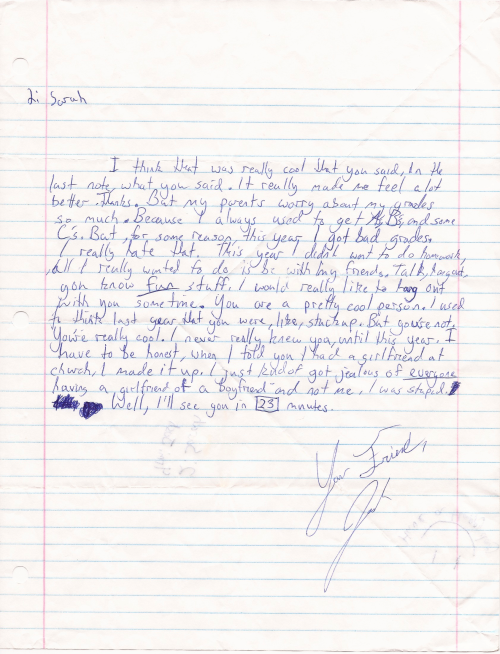 Hi Sarah
I think that was really cool that you said, In the
last note, what you said. It really made me feel alot
better. Thanks. But my parents worry about my grades
so much. Because I always used to get B's, and some
C's. But, for some reason, this year I got bad grades.
I really hate that. This year I didn't want to do homework,
all I really wanted to do is be with my friends. Talk, hangout,
you know fun stuff. I would really like to hang out
with you sometime. You are a pretty cool person. I used
to think last year that you were, like, stuckup. But you're not.
You're really cool. I never really knew you, until this year. I
have to be honest, when I told you I had a girlfriend at
church, I made it up. I just kind of got jealous of everyone
having a girlfriend of a boyfriend and not me. I was stupid.
Well, I'll see you in 23 minutes.
Your Friend,